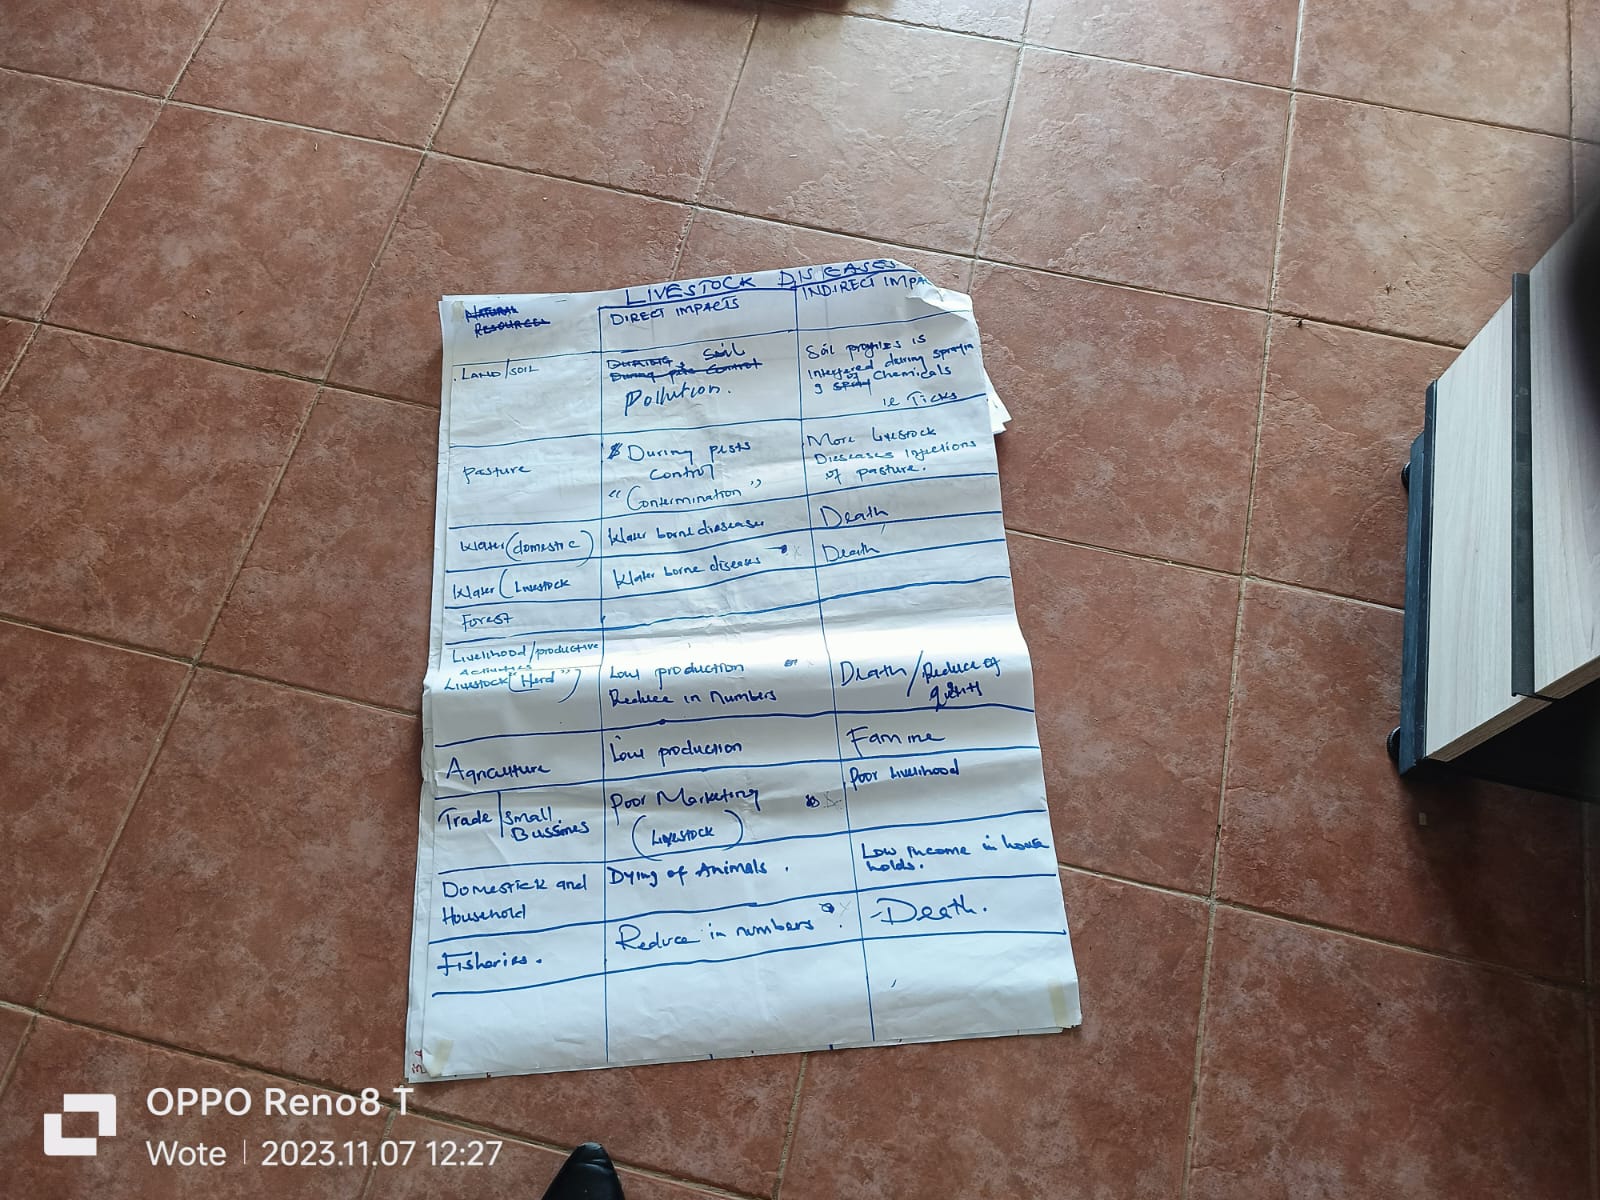 LIVESTOCK DISEASES
NATURAL
RESOURCES
DIRECT IMPACTS
INDIRECT IMPA
LAND/SOIL
DURING, Soil
During pits Control
Pollution.
Soil profiles is
Interfered during
of
Chemicals
ie Ticks
Pasture
During pests
Control
"Contermination"
More Livestock
Dieseases
of pasture.
Water (domestic)
Water borne dieseases
Death
Water (Livestock
Water borne diseases
Death
Forest
Livelihood/productive
Activities
Livestock "(Herd")
Low production
Reduce in Numbers
Death/Reduce of
Agriculture
Low production
Famine
Trade
Small.
Bussines
Poor Marketing
(Livestock)
Poor Livelihood
Domestick and
Household
Dying of Animals.
Low income in house
holds.
Fisheries.
Reduce in numbers
-Death.
OPPO Reno8 T
Wote | 2023.11.07 12:27